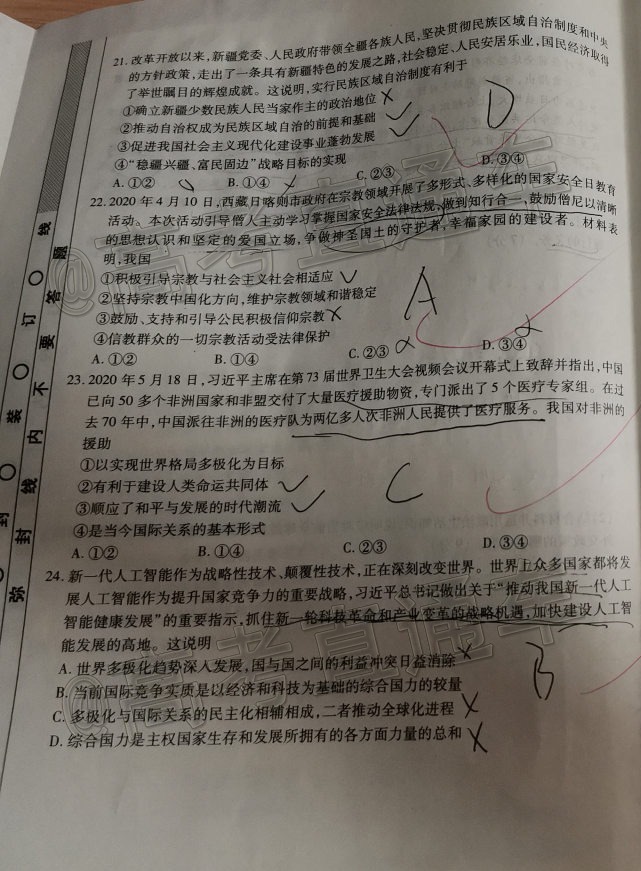 21. 改革开放以来,新疆党委、人民政府带领全疆各族人民,坚决贯彻民族区域自治制度和中央
的方针政策,走出了一条具有新疆特色的发展之路,社会稳定、人民安居乐业,国民经济取得
了举世瞩目的辉煌成就。这说明,实行民族区域自治制度有利于
①确立新疆少数民族人民当家作主的政治地位
②推动自治权成为民族区域自治的前提和基础
③促进我国社会主义现代化建设事业蓬勃发展
④“稳疆兴疆、富民固边”战略目标的实现
D
A. ①② B. ①④ C. ②③ D. ③④
22. 2020 年 4 月 10 日,西藏日喀则市政府在宗教领域开展了多形式、多样化的国家安全日教育
活动。本次活动引导僧人主动学习掌握国家安全法律法规,做到知行合一,鼓励僧尼以清晰
的思想认识和坚定的爱国立场,争做神圣国土的守护者,幸福家园的建设者。材料表
明,我国
①积极引导宗教与社会主义社会相适应
②坚持宗教中国化方向,维护宗教领域和谐稳定
③鼓励、支持和引导公民积极信仰宗教
④信教群众的一切宗教活动受法律保护
A
A. ①② B. ①④ C. ②③ D. ③④
23. 2020 年 5 月 18 日,习近平主席在第 73 届世界卫生大会视频会议开幕式上致辞并指出,中国
已向 50 多个非洲国家和非盟交付了大量医疗援助物资,专门派出了 5 个医疗专家组。在过
去 70 年中,中国派往非洲的医疗队为两亿多人次非洲人民提供了医疗服务。我国对非洲的
援助
①以实现世界格局多极化为目标
②有利于建设人类命运共同体
③顺应了和平与发展的时代潮流
④是当今国际关系的基本形式
C
A. ①② B. ①④ C. ②③ D. ③④
24. 新一代人工智能作为战略性技术,颠覆性技术,正在深刻改变世界。世界上众多国家都将发
展人工智能作为提升国家竞争力的重要战略,习近平总书记做出关于“推动我国新一代人工
智能健康发展”的重要指示,抓住新一轮科技革命和产业变革的战略机遇,加快建设人工智
能发展的高地。这说明
A. 世界多极化趋势深入发展,国与国之间的利益冲突日益消除
B. 当前国际竞争实质是以经济和科技为基础的综合国力的较量
C. 多极化与国际关系的民主化相辅相成,二者推动全球化进程
D. 综合国力是主权国家生存和发展所拥有的各方面力量的总和
B
弥 封 线 内 不 要 答 题
装 订 线
@高考直通车
@高考直通车